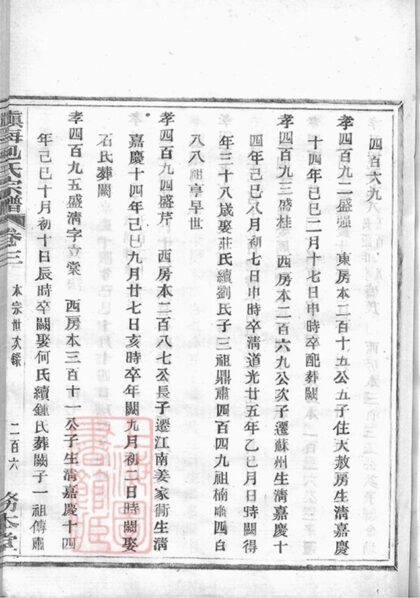 四百六九
孝四百九二盛強 東房本二百十五公五子住大敖房生清嘉慶
十四年己巳二月十七日申時卒配葬闕
孝四百九三盛桂 西房本二百六九公次子遷蘇州生清嘉慶十
四年己巳八月初七日申時卒清道光廿五年乙巳月日時闕得
年三十八歲娶莊氏續劉氏子三祖鼎肅四百四九祖楠四百
八八祖亭早世
孝四百九四盛芹 西房本二百八七公長子遷江南姜家衖生清
嘉慶十四年己巳九月廿七日亥時卒年闕九月初二日時闕娶
石氏葬闕
孝四百九五盛清字立棠 西房本三百十一公子生清嘉慶十四
年己巳十月初十日辰時卒闕娶何氏續鍾氏葬闕子一祖傳肅
鎮海 氏宗譜 卷三 本宗世次錄 二百六 務本堂